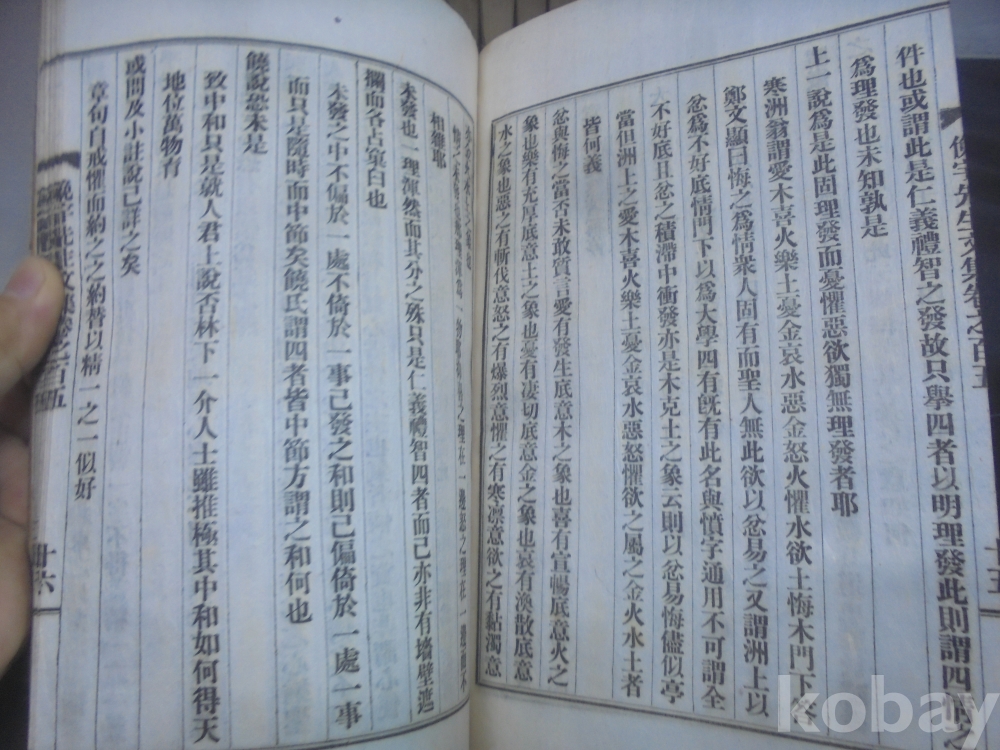 件也或謂此是仁義禮智之發故只擧四者以明理發此則謂四
爲理發也未知孰是
上一說爲是此固理發而憂懼惡欲獨無理發者耶
寒洲翁謂愛木喜火樂土憂金哀水惡金怒火懼水欲土悔木門下
鄭文顯曰悔之爲情衆人固有而聖人無此欲以忿易之又謂洲上以
忿爲不好底情門下以爲大學四有旣有此名與憤字通用不可謂全
不好底且忿之積滯中衝發亦是木克土之象云則以忿易悔儘似亭
當但洲上之愛木喜火樂土憂金哀水惡怒懼欲之屬之金火水土者
皆何義
忿與悔之當否未敢質言愛有發生底意木之象也喜有宣暢底意火之
象也樂有充厚底意土之象也憂有凄切底意金之象也哀有渙散底意
水之象也惡之有斬伐意怒之有爆烈意懼之有寒凛意欲之有黏濁意
相離耶
未發也一理渾然而其分之殊只是仁義禮智四者而已亦非有墻壁遮
攔而各占窠臼也
未發之中不偏於一處不倚於一事已發之和則已偏倚於一處一事
而只是隨時而中節矣饒氏謂四者皆中節方謂之和何也
饒說恐未是
致中和只是就人君上說否林下一介人士雖推極其中和如何得天
地位萬物育
或問及小註說已詳之矣
章句自戒懼而約之之約替以精一之一似好
先生文集卷之百五
卅六
kobay